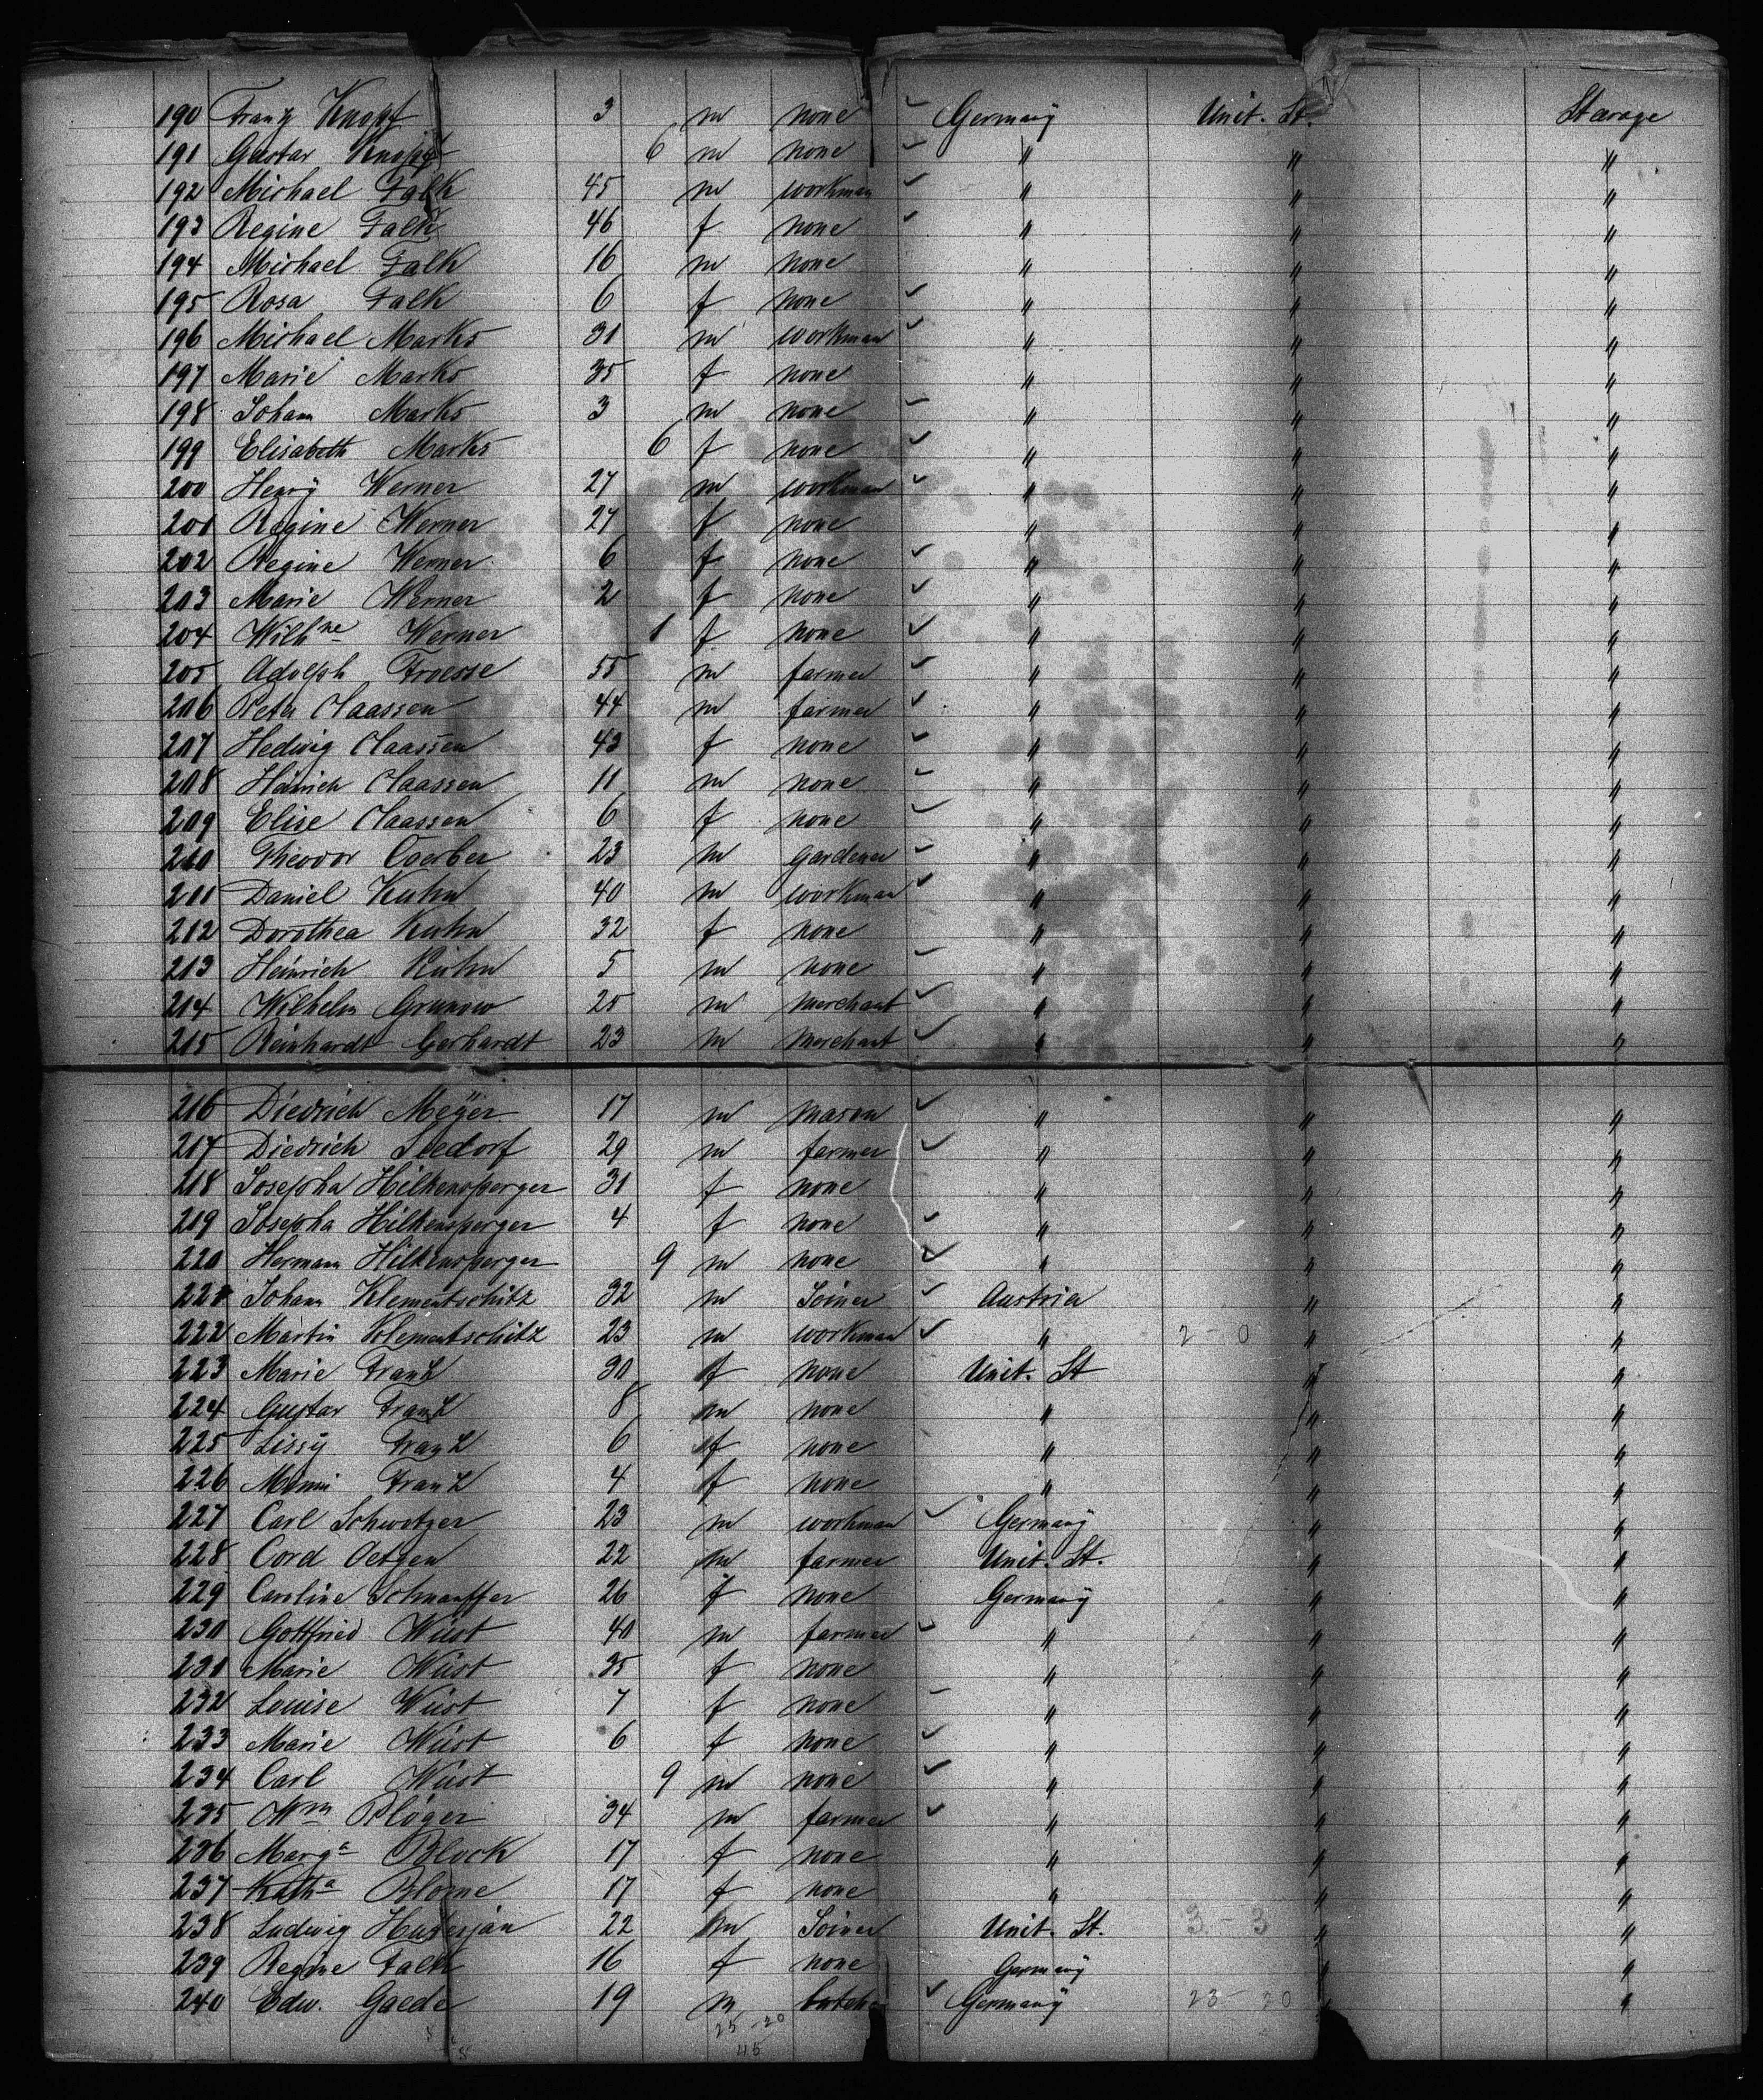 190 Franz Knopf 3 m none ✓ Germany Unit. St. Stearage
191 Gustav Knopf 6 m none ✓ " " "
192 Michael Falk 45 m workman ✓ " " "
193 Regine Falk 46 f none ✓ " " "
194 Michael Falk 16 m none " " "
195 Rosa Falk 6 f none ✓ " " "
196 Michael Marks 31 m workman ✓ " " "
197 Marie Marks 35 f none " " "
198 Johann Marks 3 m none ✓ " " "
199 Elisabeth Marks 6 f none ✓ " " "
200 Henry Werner 27 m workman ✓ " " "
201 Regine Werner 27 f none " " "
202 Regine Werner 6 f none ✓ " " "
203 Marie Werner 2 f none ✓ " " "
204 Wilhne Werner 1 f none ✓ " " "
205 Adolph Froesse 55 m farmer ✓ " " "
206 Peter Claassen 44 m farmer ✓ " " "
207 Hedwig Claassen 43 f none ✓ " " "
208 Heinrich Claassen 11 m none ✓ " " "
209 Elise Claassen 6 f none ✓ " " "
210 Theodor Coerber 23 m gardener ✓ " " "
211 Daniel Kuhn 40 m workman ✓ " " "
212 Dorothea Kuhn 32 f none " " "
213 Heinrich Kuhn 5 m none ✓ " " "
214 Wilhelm Grunow 25 m merchant ✓ " " "
215 Reinhardt Gerhardt 23 m merchant ✓ " " "
216 Diedrich Meÿer 17 m mason ✓ " " "
217 Diedrich Seedorf 29 m farmer ✓ " " "
218 Josepha Hilkensperger 31 f none " " "
219 Josepha Hilkensperger 4 f none ✓ " " "
220 Hermann Hilkensperger 9 m none ✓ " " "
221 Johann Klementschitz 32 m Joiner ✓ Austria " "
222 Martin Klementschitz 23 m workman ✓ " 2 - 0 " "
223 Marie Franz 30 f none Unit. St " "
224 Gustav Franz 8 m none " " "
225 Lissy Franz 6 f none " " "
226 Minni Franz 4 f none " " "
227 Carl Schwetzer 23 m workman ✓ Germany " "
228 Cord Oetgen 22 m farmer Unit. St. " "
229 Caroline Schnauffer 26 f none Germany " "
230 Gottfried Wüst 40 m farmer ✓ " " "
231 Marie Wüst 35 f none " " "
232 Louise Wüst 7 f none ✓ " " "
233 Marie Wüst 6 f none ✓ " " "
234 Carl Wüst 9 m none ✓ " " "
235 Wm Plöger 34 m farmer ✓ " " "
236 Marga Block 17 f none " " "
237 Katha Blome 17 f none " " "
238 Ludwig 22 m Joiner Unit. St. 3 - 3 " "
239 Regine Falk 16 f none Germany " "
240 Edw. Gaede 19 m butcher ✓ Germany 23 - 20 " "
25 - 20
45